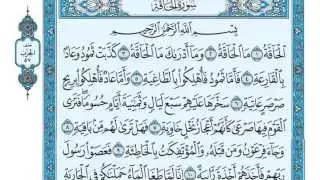 سُورَةُ الْحَاقَّةِ
بِسْمِ اللَّهِ الرَّحْمَٰنِ الرَّحِيمِ
الْحَاقَّةُ ١ مَا الْحَاقَّةُ ٢ وَمَا أَدْرَىٰكَ مَا الْحَاقَّةُ ٣ كَذَّبَتْ ثَمُودُ وَعَادٌ
بِالْقَارِعَةِ ٤ فَأَمَّا ثَمُودُ فَأُهْلِكُوا بِالطَّاغِيَةِ ٥ وَأَمَّا عَادٌ فَأُهْلِكُوا بِرِيحٍ
صَرْصَرٍ عَاتِيَةٍ ٦ سَخَّرَهَا عَلَيْهِمْ سَبْعَ لَيَالٍ وَثَمَٰنِيَةَ أَيَّامٍ حُسُومًا فَتَرَى
الْقَوْمَ فِيهَا صَرْعَىٰ كَأَنَّهُمْ أَعْجَازُ نَخْلٍ خَاوِيَةٍ ٧ فَهَلْ تَرَىٰ لَهُم مِّنۢ بَاقِيَةٍ ٨
وَجَاءَ فِرْعَوْنُ وَمَن قَبْلَهُ وَالْمُؤْتَفِكَٰتُ بِالْخَاطِئَةِ ٩ فَعَصَوْا رَسُولَ
رَبِّهِمْ فَأَخَذَهُمْ أَخْذَةً رَّابِيَةً ١٠ إِنَّا لَمَّا طَغَا الْمَاءُ حَمَلْنَٰكُمْ فِي الْجَارِيَةِ